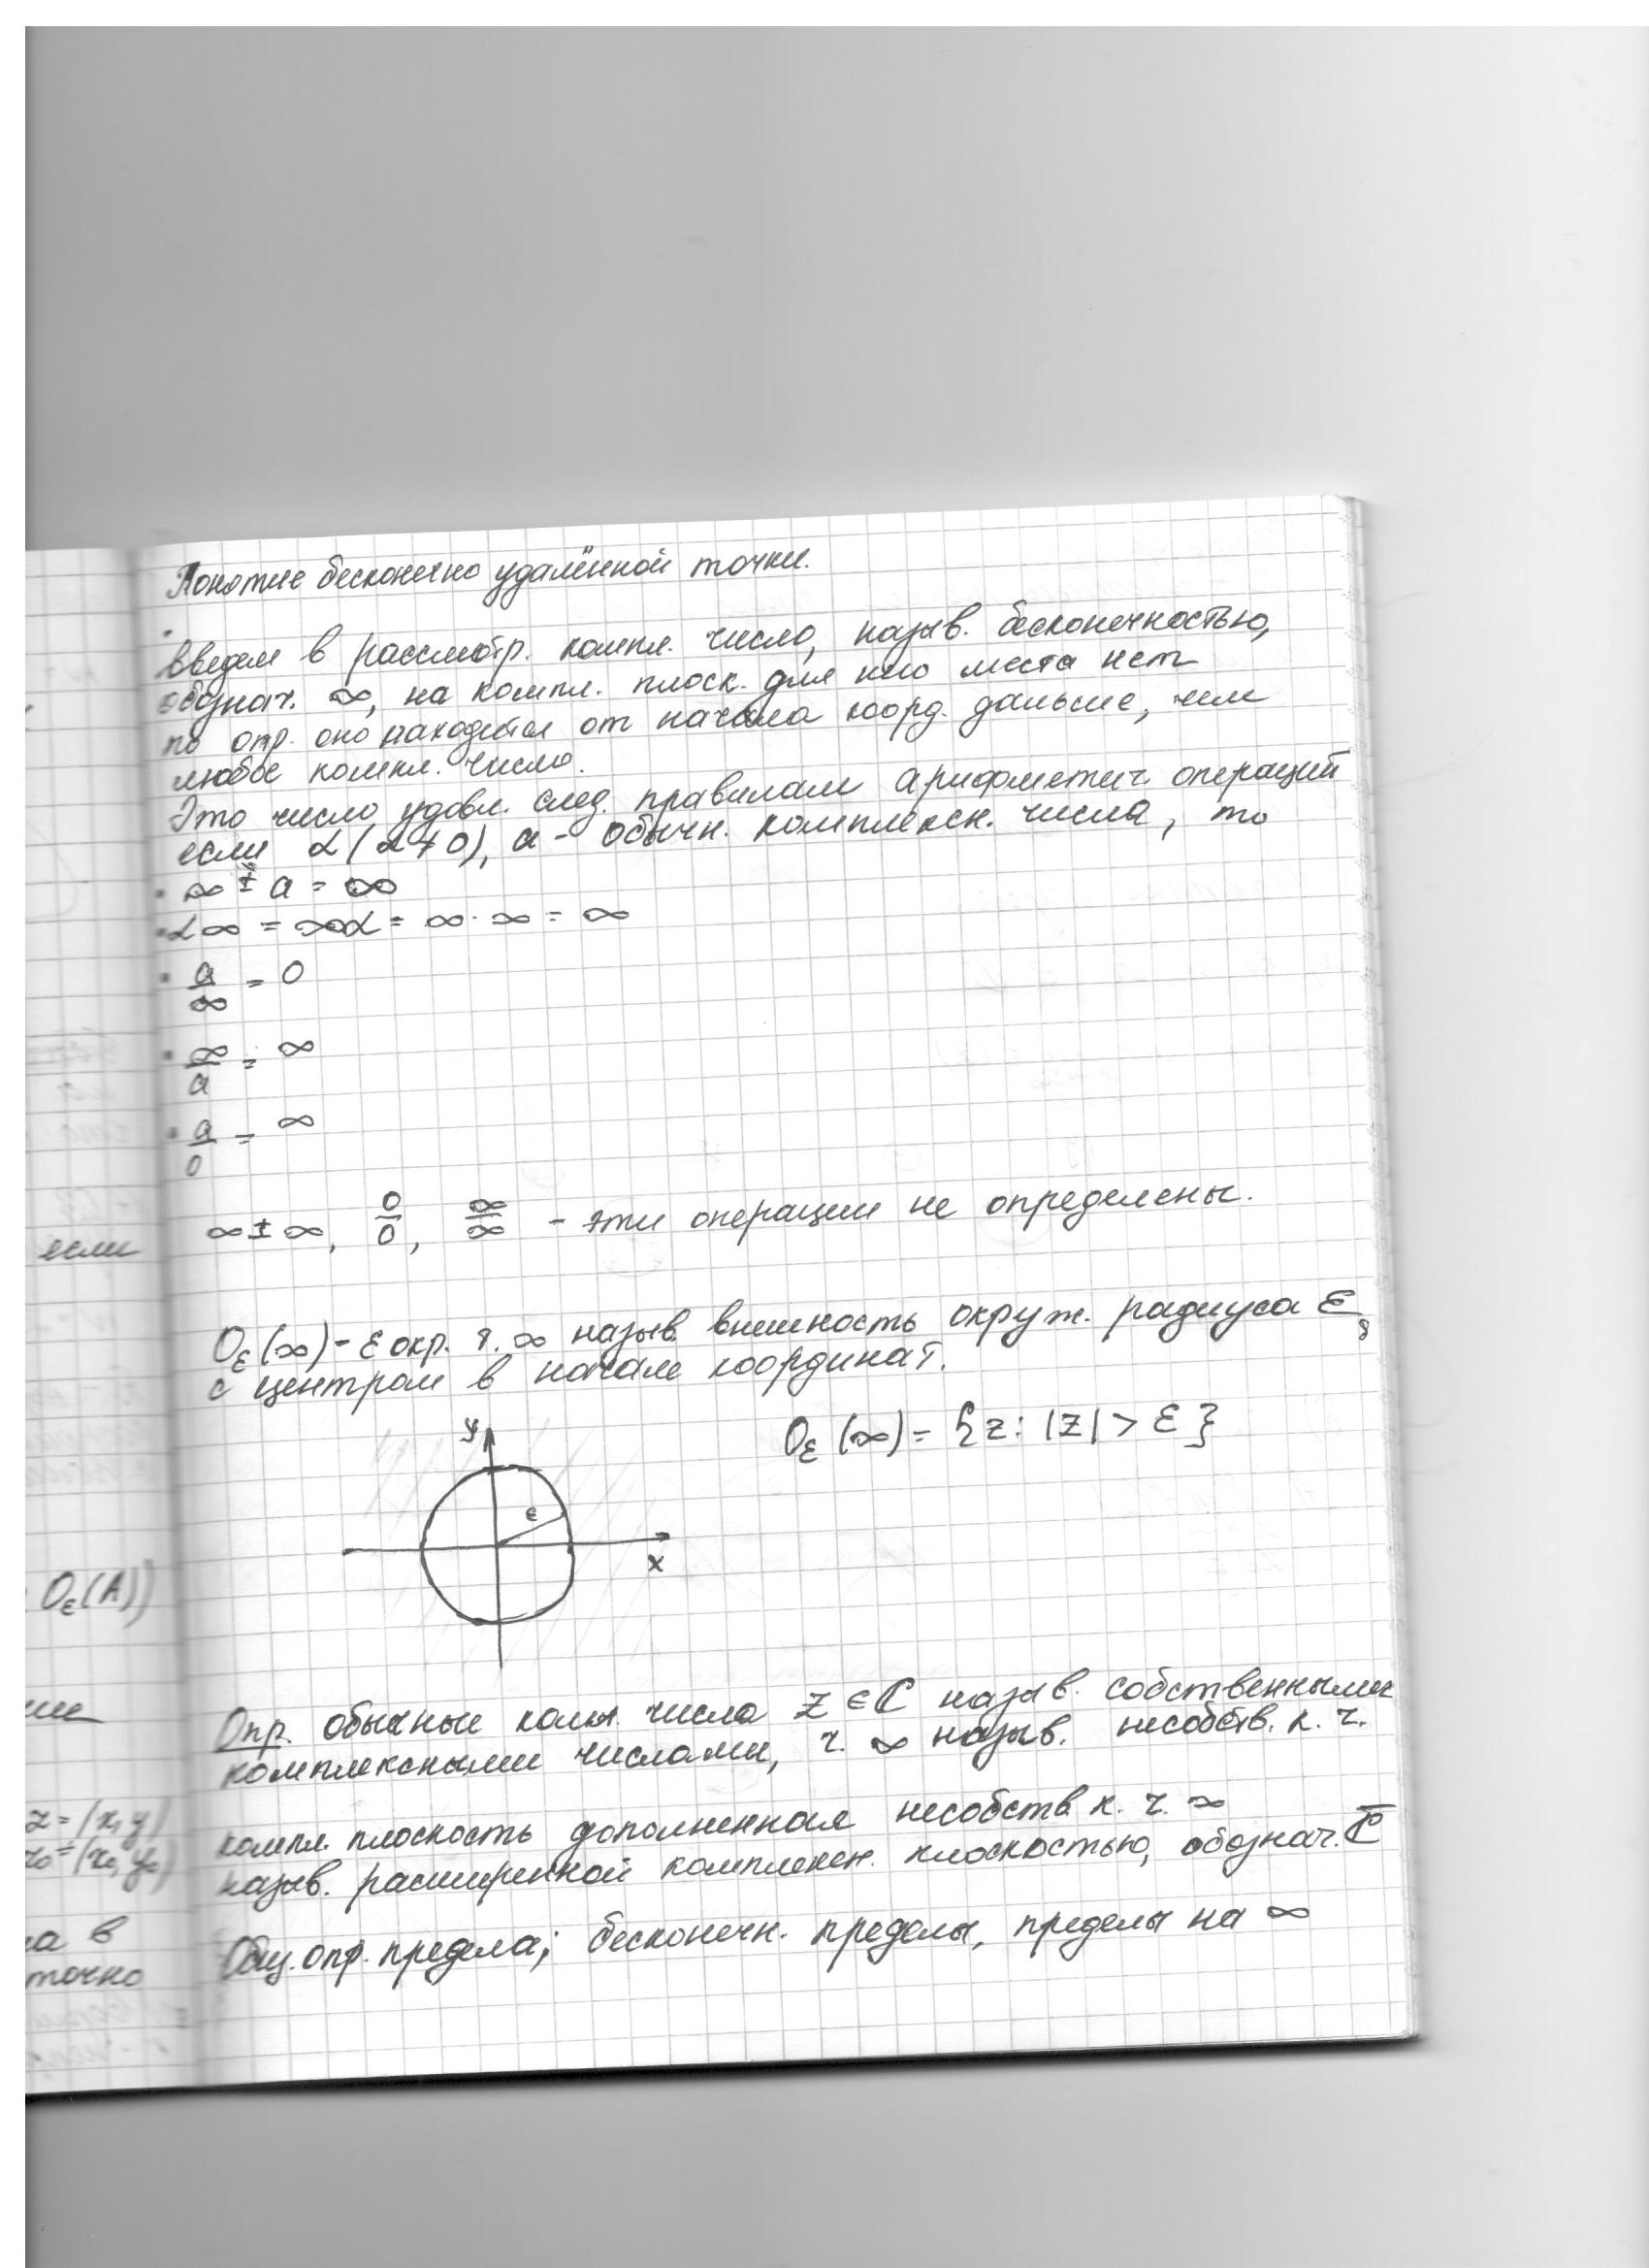 Понятие бесконечно удалённой точки.
Введем в рассмотр. компл. число, назыв. бесконечностью,
обознач. ∞, на компл. плоск. для него места нет
по опр. оно находится от начала коорд. дальше, чем
любое компл. число.
Это число удовл. след. правилам арифметич. операций
если α (α ≠ 0), a - обычн. комплексн. числа, то
∞ ± a = ∞
α∞ = ∞α = ∞·∞ = ∞
a/∞ = 0
∞/a = ∞
a/0 = ∞
∞ ± ∞, 0/0, ∞/∞ - эти операции не определены.
если
Oε(∞) - ε окр. т. ∞ назыв. внешность окруж. радиуса ε,
с центром в начале координат.
y
Oε(∞) = {z: |z| > ε}
ε
x
Oε(A))
Опр. обычные компл. числа z ∈ ℂ назыв. собственными
комплексными числами, т. ∞ назыв. несобств. к. ч.
z = (x, y)
z₀ = (x₀, y₀)
компл. плоскость дополненная несобств. к. ч. ∞
назыв. расширенной комплексн. плоскостью, обознач. ℂ̅
а в
точно
Общ. опр. предела; бесконечн. пределы, пределы на ∞